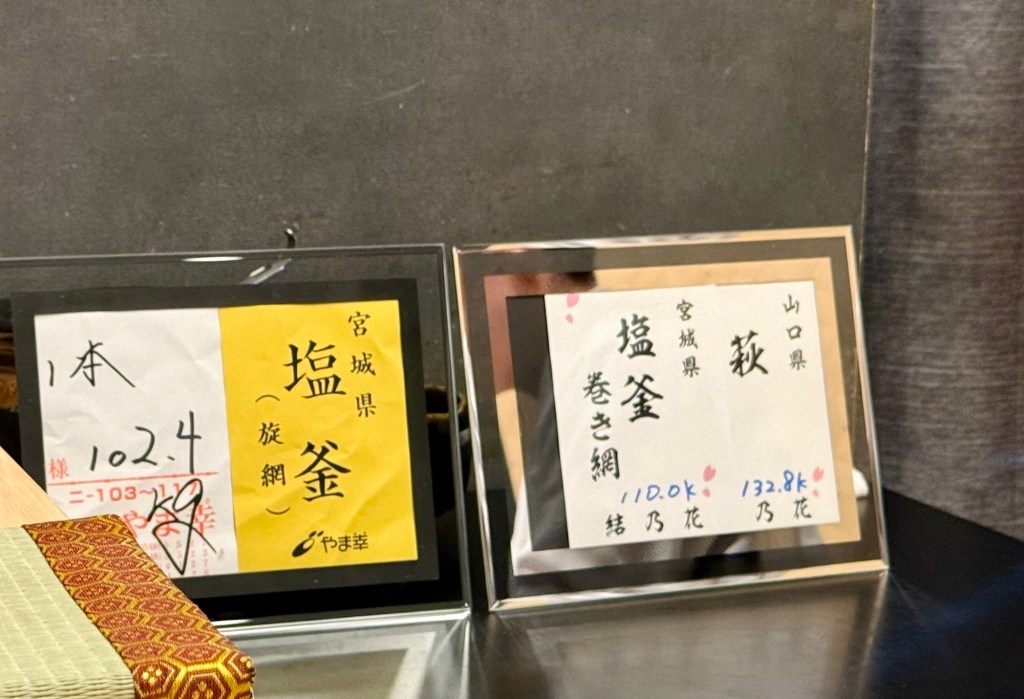 宮城県
塩釜
（旋網）
やま幸
1本
102.4
様
ニ-103~117
やま幸
山口県
萩
132.8K
乃花
宮城県
塩釜
巻き網
110.0K
結乃花